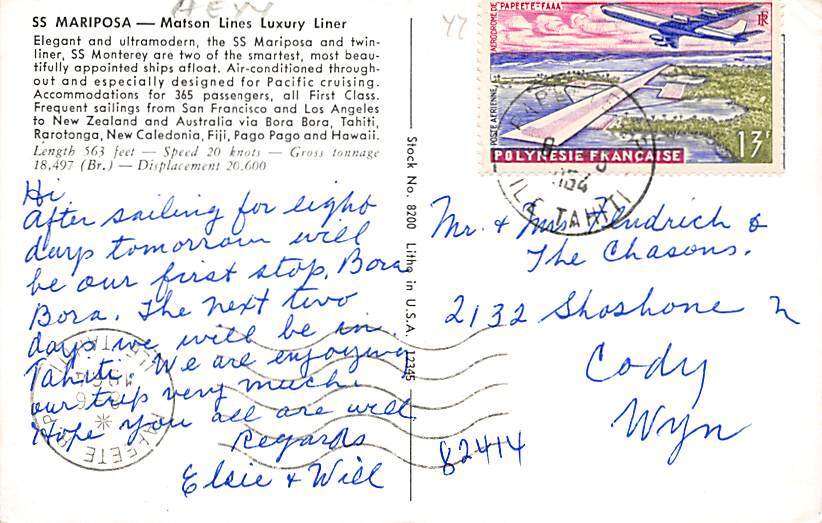 SS MARIPOSA — Matson Lines Luxury Liner
Elegant and ultramodern, the SS Mariposa and twin-
liner, SS Monterey are two of the smartest, most beau-
tifully appointed ships afloat. Air-conditioned through-
out and especially designed for Pacific cruising.
Accommodations for 365 passengers, all First Class.
Frequent sailings from San Francisco and Los Angeles
to New Zealand and Australia via Bora Bora, Tahiti,
Rarotonga, New Caledonia, Fiji, Pago Pago and Hawaii.
Length 563 feet — Speed 20 knots — Gross tonnage
18,497 (Br.) — Displacement 20,600
Hi
After sailing for eight
days tomorrow will
be our first stop, Bora
Bora. The next two
days we will be in
Tahiti. We are enjoying
our trip very much.
Hope you all are well
Regards
Elsie + Will
Stock No. 8200 Litho in U.S.A. 12345
AERODROME DE PAPEETE-FAAA
RF
POSTE AERIENNE
13F
POLYNESIE FRANÇAISE
ILE TAHITI
PAPEETE
Mr. + Mrs. &
The Chasons.
2132 Shoshone
Cody
Wyn
82414